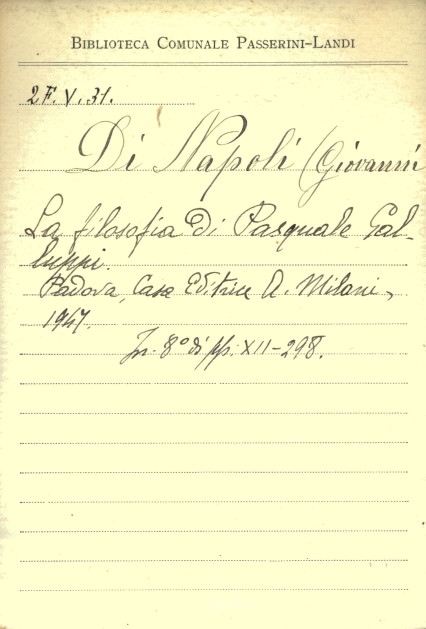 BIBLIOTECA COMUNALE PASSERINI-LANDI
2F. V. 31.
Di Napoli (Giovanni
La filosofia di Pasquale Gal-
luppi.
Padova, Casa Editrice A. Milani,
1947.
In. 8° di pp. XII-298.